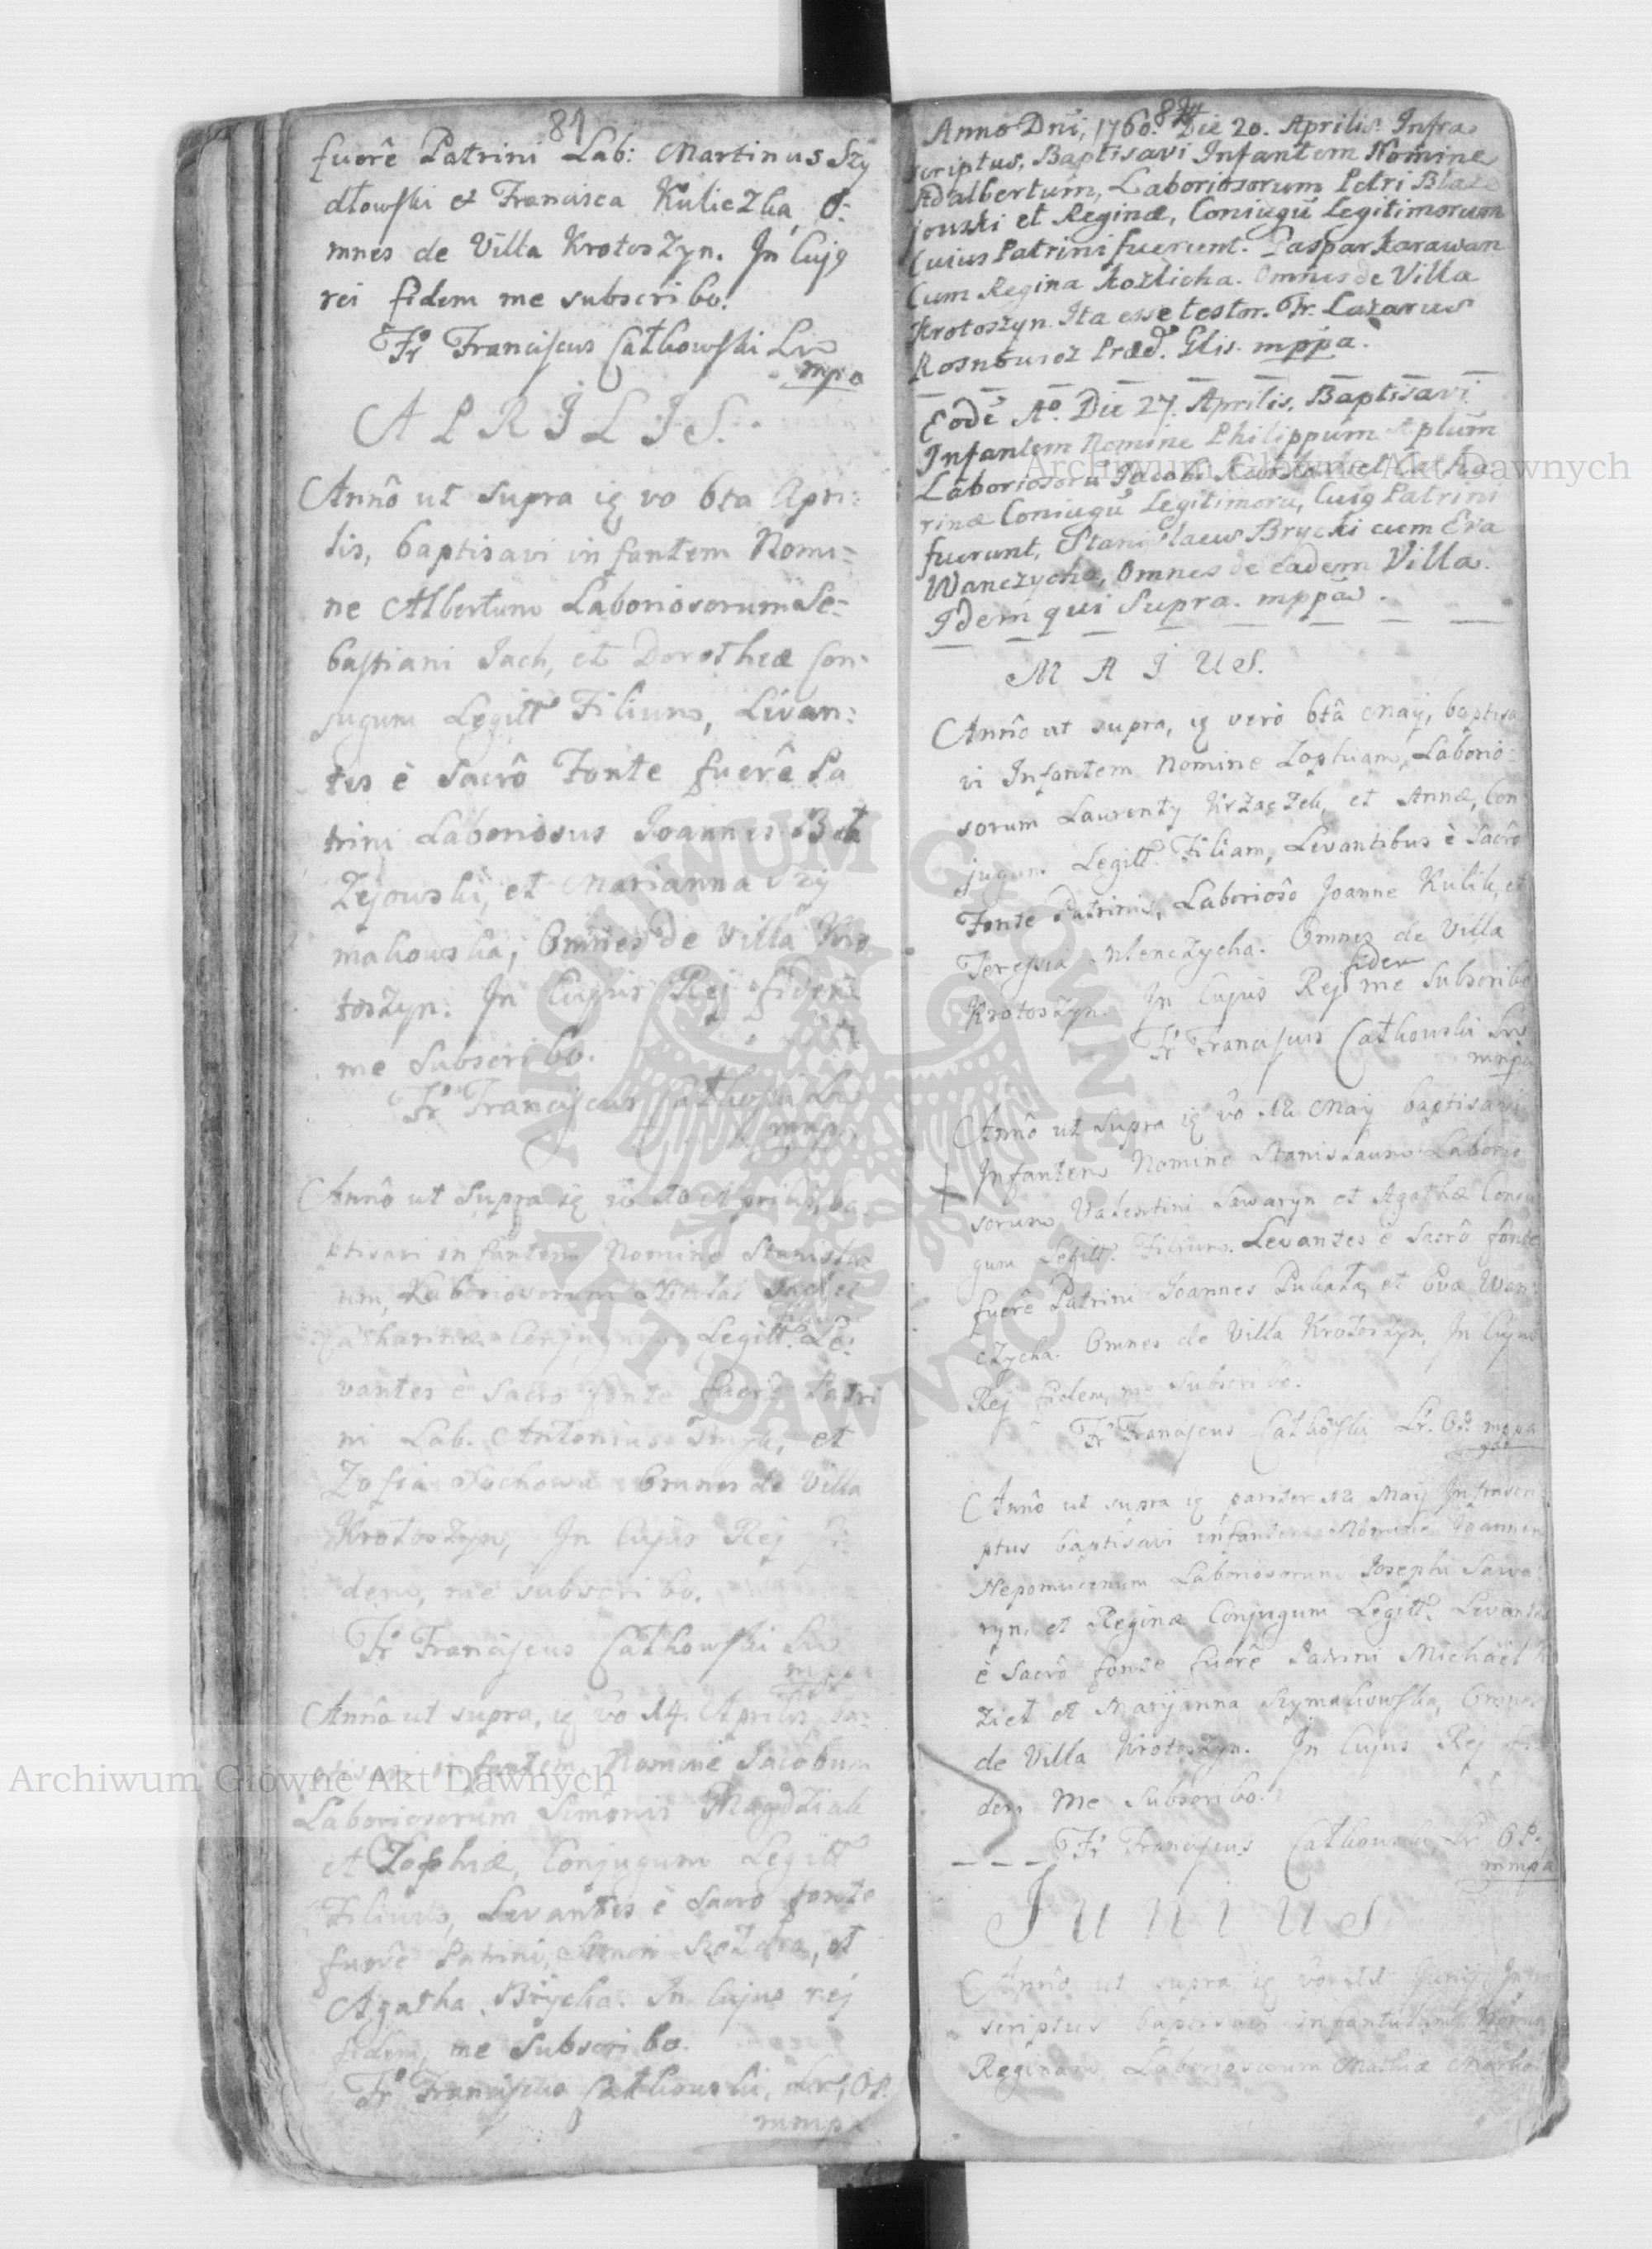 81
fuorê Patrini Lab: Martinus Szy
dłowski et Francisca Kuliczka, O:
mnes de Villa Krotoszyn. In Cujq
rei fidem me subscribo.
Fr Franciscus Całkowski Lr
mpa
APRILIS.
Annô ut supra iq vo 6ta Apri:
lis, baptisavi infantem Nomi:
ne Albertum Laboriosorum Se:
bastiani Jach, et Dorotheæ Con:
jugum Legitt Filium, Levan:
tes è Sacrô Fonte fuerê Pa
trini Laboriosus Joannes
et Marianna Szy
makowska, Omnes de Villa Kro
toszyn. In Cujus Rej fidem
me Subscribo.
Fr Franciscus
mpp
Annô ut Supra iq vo 10 Aprilis, ba
ptisavi infantem Nomine Stanisla
um, Laboriosorum et
Catharinæ Conjugum Legitt. Le:
vantes è Sacro fonte fuerê Patri
ni Lab. Antonius et
Zofia Omnes de Villa
Krotoszyn, In Cujus Rej fi:
dem, me subscribo.
Fr Franciscus Całkowski Lr
mppa
Annô ut supra, iq vo 14. Aprilis ba:
ptisavi infantem Nomine Jacobum
Laboriosorum Simonis Magdziak
et Zophiæ, Conjugum Legitt
Filium, Levantes è Sacrô fonte
fuerê Patrini, Simon et
Agatha Brycha. In Cujus rej
fidem, me Subscribo.
Fr Franciscus Całkowski, Lr, OP.
mmpp
Anno Dni, 1760. Die 20. Aprilis. Infra
scriptus, Baptisavi Infantem Nomine
Adalbertum, Laboriosorum Petri Blaze
jouski et Reginæ, Coniugū Legitimorum
Cuius Patrini fuerunt. Gaspar Karawan
Cum Regina Kozlicha. Omnes de Villa
Krotoszyn. Ita esse testor. Fr. Lazarus
Præd. Glis. mppa.
Eôdē Aº. Die 27. Aprilis, Baptisavi
Infantem Nomine Philippum Aplum
Laboriosorū Jacobi et Catha
rinæ Coniugū Legitimorū, Cuiq Patrini
fuerunt, Stanislaus Brycki cum Eva
Wanczycha, Omnes de eadem Villa.
Idem qui Supra. mppa.
MAJUS.
Annô ut supra, iq verò 6tâ May, baptisa
vi Infantem Nomine Zophiam, Laborio:
sorum Laurenty Krzączek, et Annæ, Con
jugum Legitt. Filiam, Levantibus è Sacrô
Fonte Patrinis, Laboriosô Joanne Kulik, et
Teressia Omnes de Villa
Krotoszyn. In Cujus Rej fidem me Subscribo
Fr Franciscus Całkowski Lr
mmpa
Annô ut Supra iq vô 12 May baptisavi
Infantem Nomine Stanislaum Laborio
sorum Valentini Sawaryn et Agathæ Conju
gum Legitt. Filium. Levantes è Sacrô fonte
fuerê Patrini Joannes et Eva Wan:
czycha. Omnes de Villa Krotoszyn. In Cujus
Rej fidem, me Subscribo.
Fr Franciscus Całkowski Lr. OP. mppa
Annô ut supra iq pariter 12 May Infrascri
ptus baptisavi infantem Nomine Joannem
Nepomucenum Laboriosorum Josephi Sawa
ryn, et Reginæ Conjugum Legitt. Levantes
è Sacrô fonte fuerê Patrini Michael
et Maryanna Szymakowska, Omnes
de Villa Krotoszyn. In Cujus Rej fi
dem me Subscribo.
Fr Franciscus Całkowski, Lr OP.
mmpa
JUNIUS
Annô ut supra iq vo Junij, Infra
scriptus baptisavi infantulam Nomine
Reginam Laboriosorum Mathiæ
Archiwum Główne Akt Dawnych
Archiwum Główne Akt Dawnych
ARCHIWUM GŁÓWNE
AKT DAWNYCH